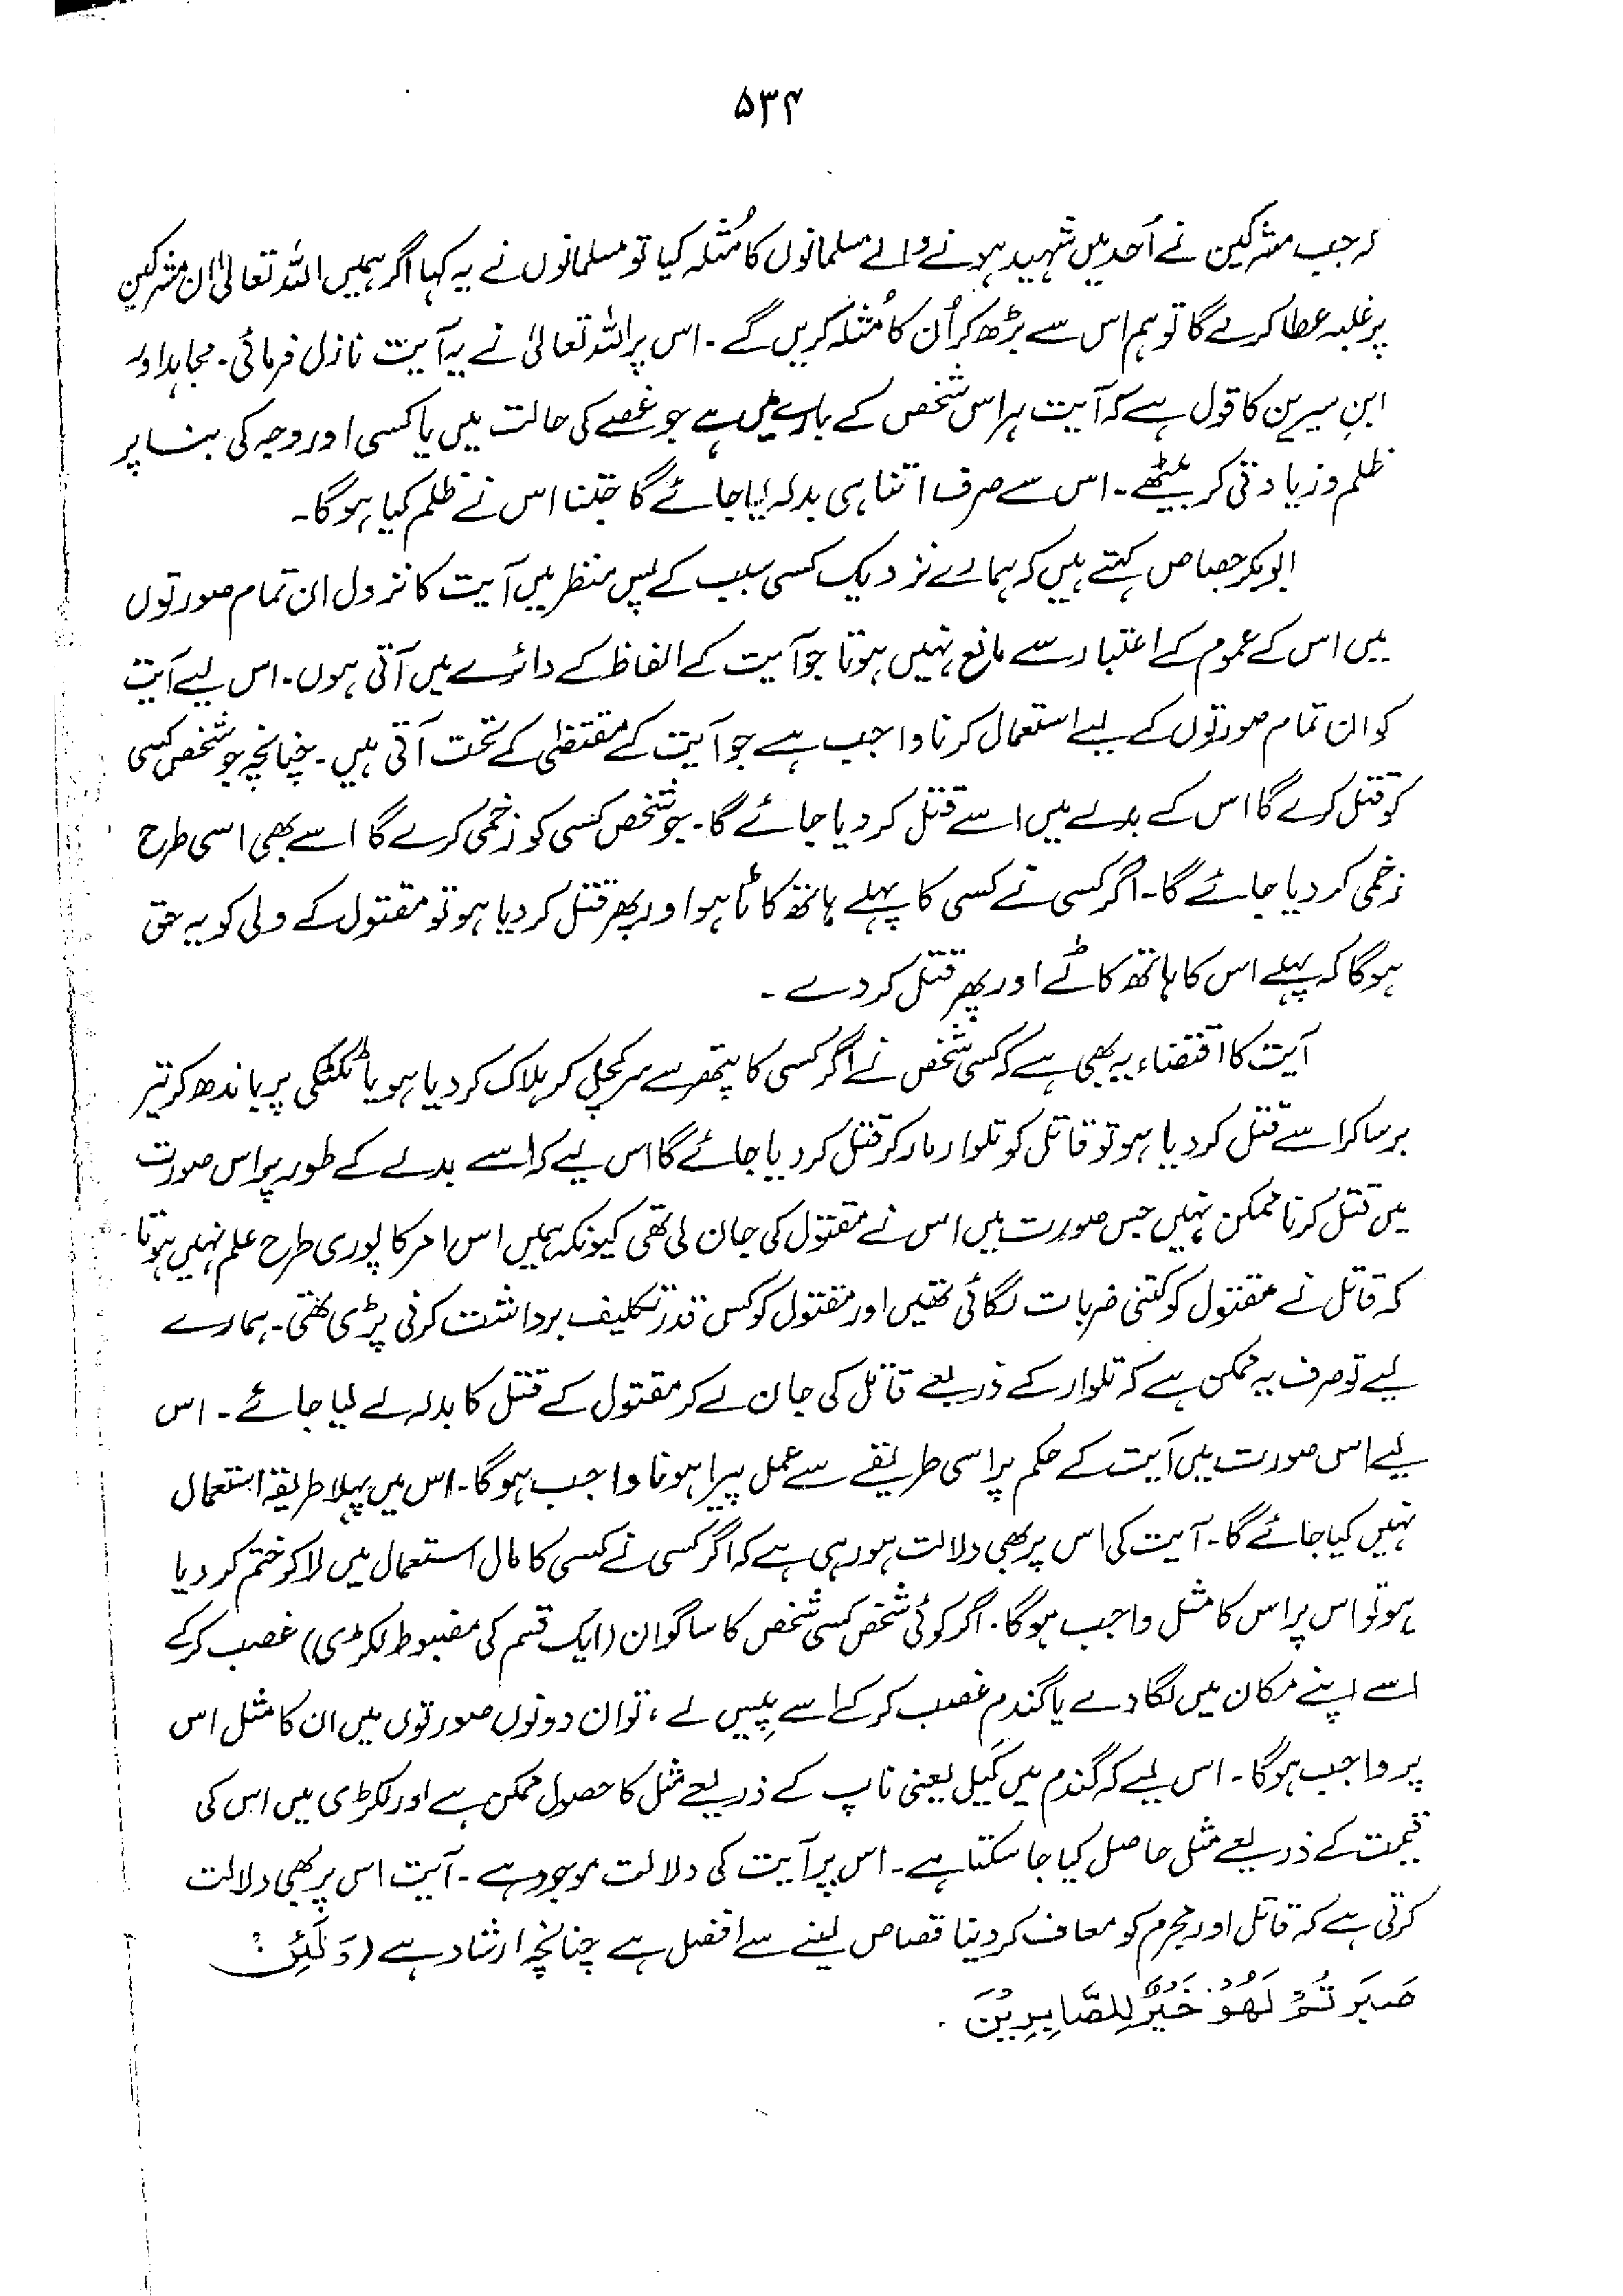 ۵۳۴
کہ جب مشرکین نے اُحد میں شہید ہونے والے مسلمانوں کا مُثلہ کیا تو مسلمانوں نے یہ کہا اگر ہمیں اللہ تعالیٰ ان مشرکین
پر غلبہ عطا کرے گا تو ہم اس سے بڑھ کر اُن کا مُثلہ کریں گے۔ اس پر اللہ تعالیٰ نے یہ آیت نازل فرمائی۔ مجاہد اور
ابن سیرین کا قول ہے کہ آیت ہر اس شخص کے بارے میں ہے جو غصے کی حالت میں یا کسی اور وجہ کی بنا پر
ظلم و زیادتی کر بیٹھے۔ اس سے صرف اتنا ہی بدلہ لیا جائے گا جتنا اس نے ظلم کیا ہوگا۔
ابوبکر جصاص کہتے ہیں کہ ہمارے نزدیک کسی سبب کے پس منظر میں آیت کا نزول ان تمام صورتوں
میں اس کے عموم کے اعتبار سے مانع نہیں ہوتا جو آیت کے الفاظ کے دائرے میں آتی ہوں۔ اس لیے آیت
کو ان تمام صورتوں کے لیے استعمال کرنا واجب ہے جو آیت کے مقتضٰی کے تحت آتی ہیں۔ چنانچہ جو شخص کسی
کو قتل کرے گا اس کے بدلے میں اسے قتل کر دیا جائے گا۔ جو شخص کسی کو زخمی کرے گا اسے بھی اسی طرح
زخمی کر دیا جائے گا۔ اگر کسی نے کسی کا پہلے ہاتھ کاٹا ہو اور پھر قتل کر دیا ہو تو مقتول کے ولی کو یہ حق
ہوگا کہ پہلے اس کا ہاتھ کاٹے اور پھر قتل کر دے۔
آیت کا اقتضاء یہ بھی ہے کہ کسی شخص نے اگر کسی کا پتھر سے سر کچل کر ہلاک کر دیا ہو یا ٹکٹکی پر باندھ کر تیر
برسا کر اسے قتل کر دیا ہو تو قاتل کو تلوار مار کر قتل کر دیا جائے گا اس لیے کہ اسے بدلے کے طور پر اس صورت
میں قتل کرنا ممکن نہیں جس صورت میں اس نے مقتول کی جان لی تھی کیونکہ ہمیں اس امر کا پوری طرح علم نہیں ہوتا
کہ قاتل نے مقتول کو کتنی ضربات لگائی تھیں اور مقتول کو کس قدر تکلیف برداشت کرنی پڑی تھی۔ ہمارے
لیے تو صرف یہ ممکن ہے کہ تلوار کے ذریعے قاتل کی جان لے کر مقتول کے قتل کا بدلہ لے لیا جائے۔ اس
لیے اس صورت میں آیت کے حکم پر اسی طریقے سے عمل پیرا ہونا واجب ہوگا۔ اس میں پہلا طریقہ استعمال
نہیں کیا جائے گا۔ آیت کی اس پر بھی دلالت ہو رہی ہے کہ اگر کسی نے کسی کا مال استعمال میں لا کر ختم کر دیا
ہو تو اس پر اس کا مثل واجب ہوگا۔ اگر کوئی شخص کسی شخص کا ساگوان (ایک قسم کی مضبوط لکڑی) غصب کر کے
اسے اپنے مکان میں لگا دے یا گندم غصب کر کے اسے پیس لے، تو ان دونوں صورتوں میں ان کا مثل اس
پر واجب ہوگا۔ اس لیے کہ گندم میں کَیل یعنی ناپ کے ذریعے مثل کا حصول ممکن ہے اور لکڑی میں اس کی
قیمت کے ذریعے مثل حاصل کیا جا سکتا ہے۔ اس پر آیت کی دلالت موجود ہے۔ آیت اس پر بھی دلالت
کرتی ہے کہ قاتل اور مجرم کو معاف کر دینا قصاص لینے سے افضل ہے چنانچہ ارشاد ہے (وَلَئِنْ
صَبَرْتُمْ لَهُوَ خَيْرٌ لِلصَّابِرِيْنَ۔